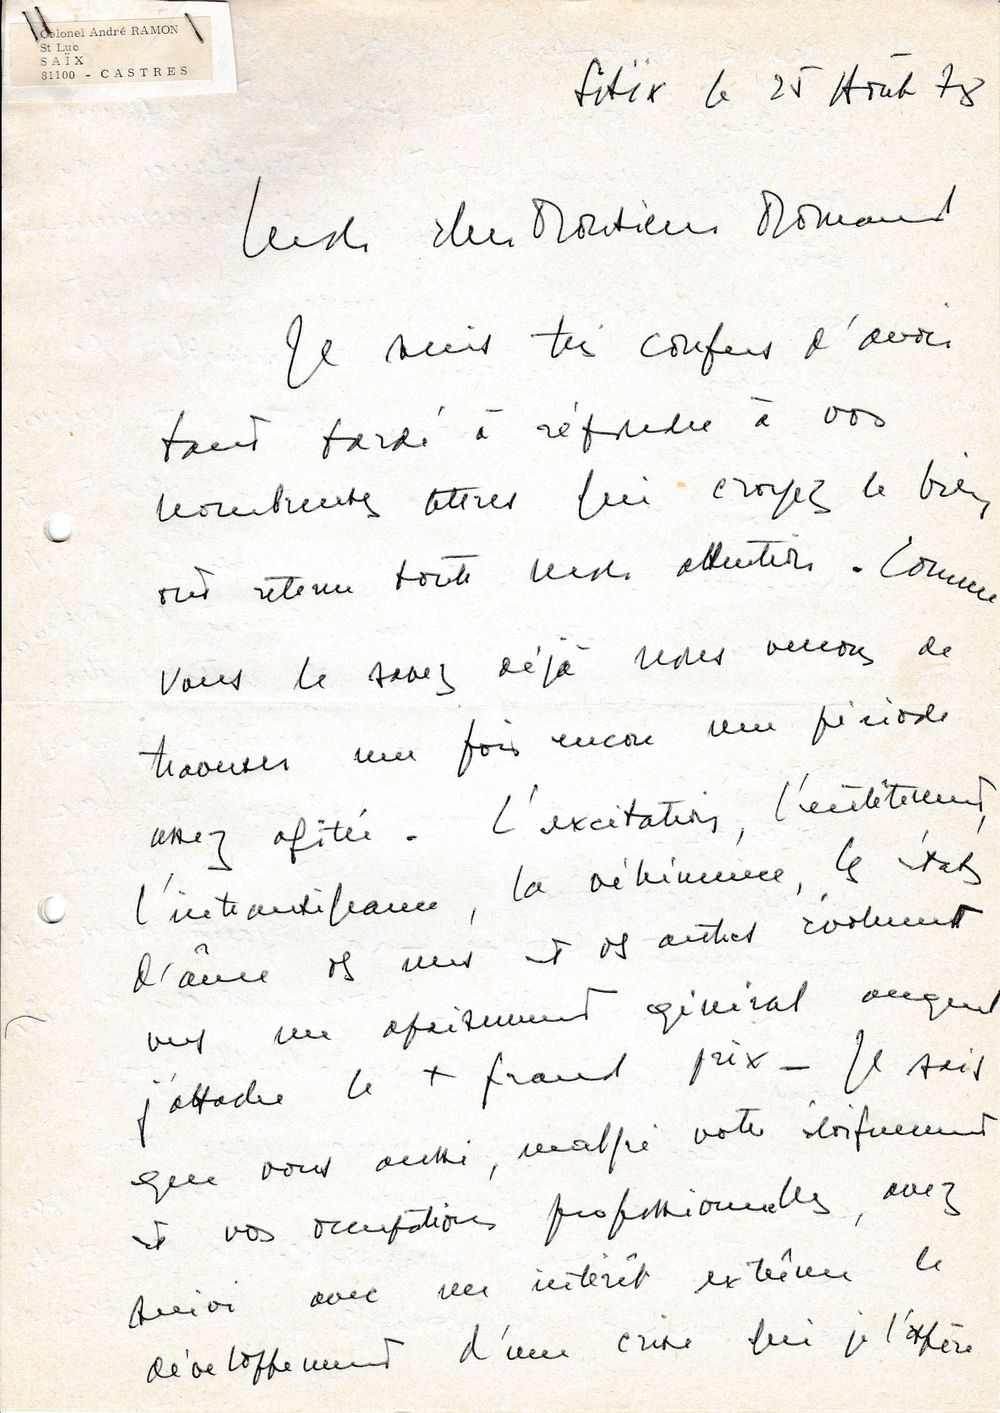 Colonel André RAMON
St Luc
SAÏX
81100 - CASTRES
SAïX le 25 Août 78
cher Monsieur Romand
Je suis très confus d'avoir
tant tardé à répondre à vos
nombreuses lettres qui croyez le bien
ont retenu toute notre attention. Comme
vous le savez déjà nous venons de
traverser une fois encore une période
assez agitée. L'excitation, l'entêtement,
l'intransigeance, la véhémence, les états
d'âme des uns et des autres évoluent
vers un apaisement général auquel
j'attache le + grand prix - Je sais
que vous aussi, malgré votre éloignement
et vos occupations professionnelles, avez
suivi avec un intérêt extrême le
développement d'une crise qui je l'espère